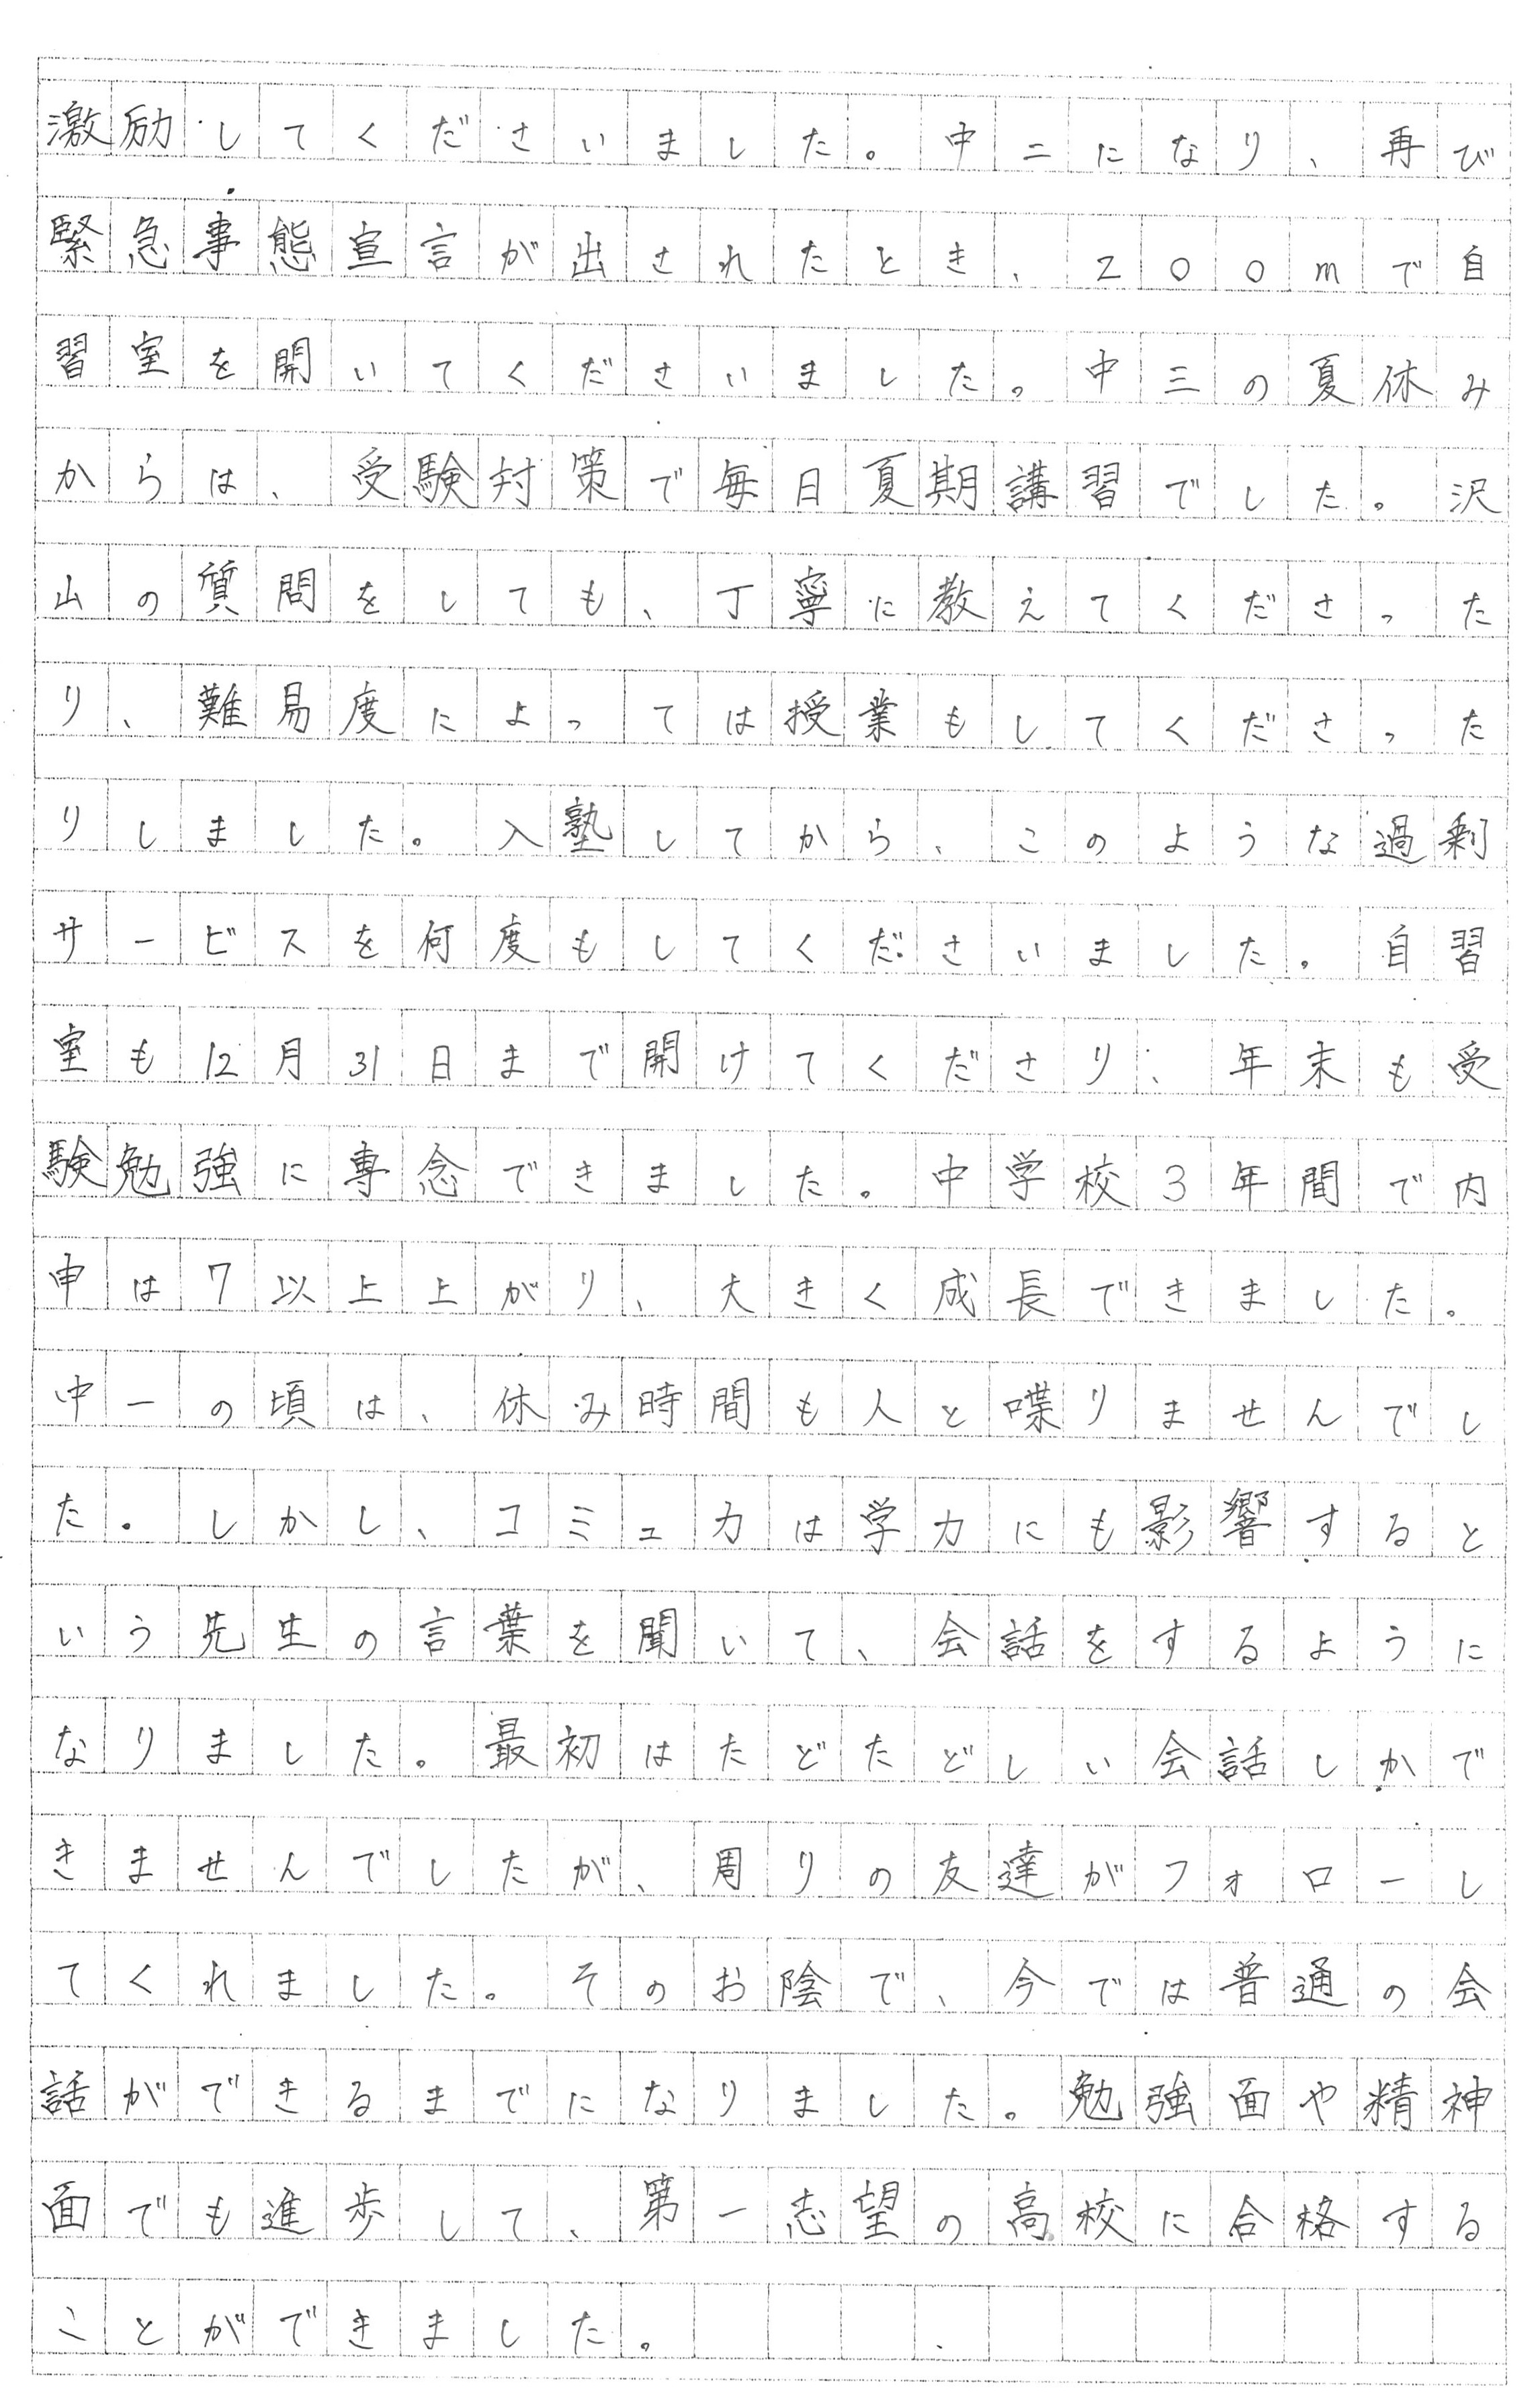 激励してくださいました。中二になり、再び
緊急事態宣言が出されたとき、zoomで自
習室を開いてくださいました。中三の夏休み
からは、受験対策で毎日夏期講習でした。沢
山の質問をしても、丁寧に教えてくださった
り、難易度によっては授業もしてくださった
りしました。入塾してから、このような過剰
サービスを何度もしてくださいました。自習
室も12月31日まで開けてくださり、年末も受
験勉強に専念できました。中学校3年間で内
申は7以上上がり、大きく成長できました。
中一の頃は、休み時間も人と喋りませんでし
た。しかし、コミュ力は学力にも影響すると
いう先生の言葉を聞いて、会話をするように
なりました。最初はたどたどしい会話しかで
きませんでしたが、周りの友達がフォローし
てくれました。そのお陰で、今では普通の会
話ができるまでになりました。勉強面や精神
面でも進歩して、第一志望の高校に合格する
ことができました。